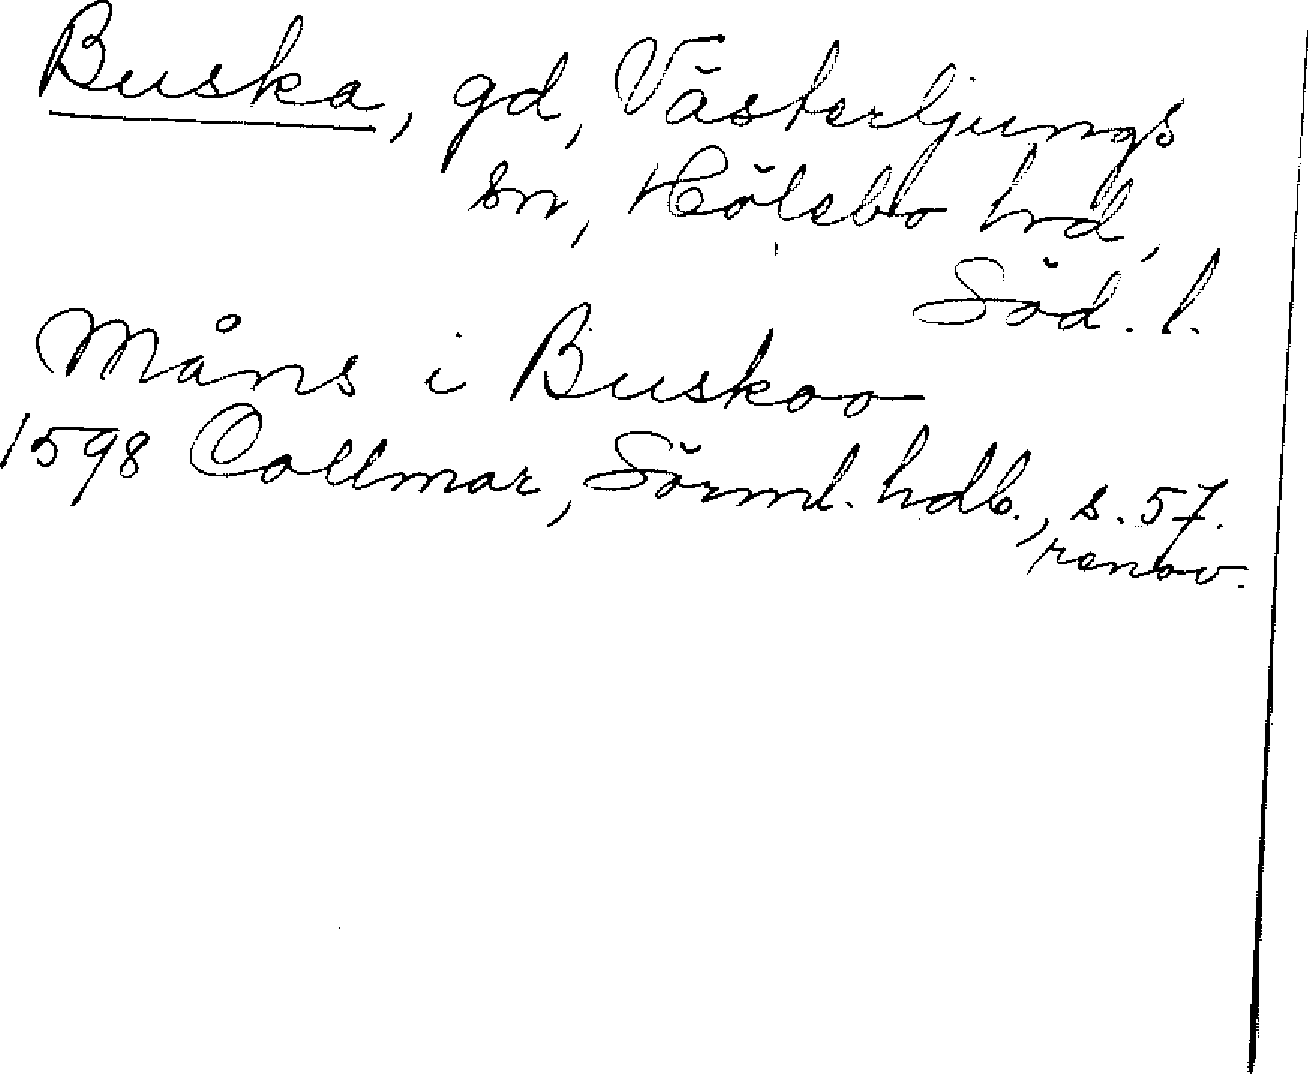 Buska, gd, Västerljungs
sn, Hölebo hrd,
Söd. l.
Måns i Buskoo
1598 Collmar, Sörml. hdl., s. 57.
renov.